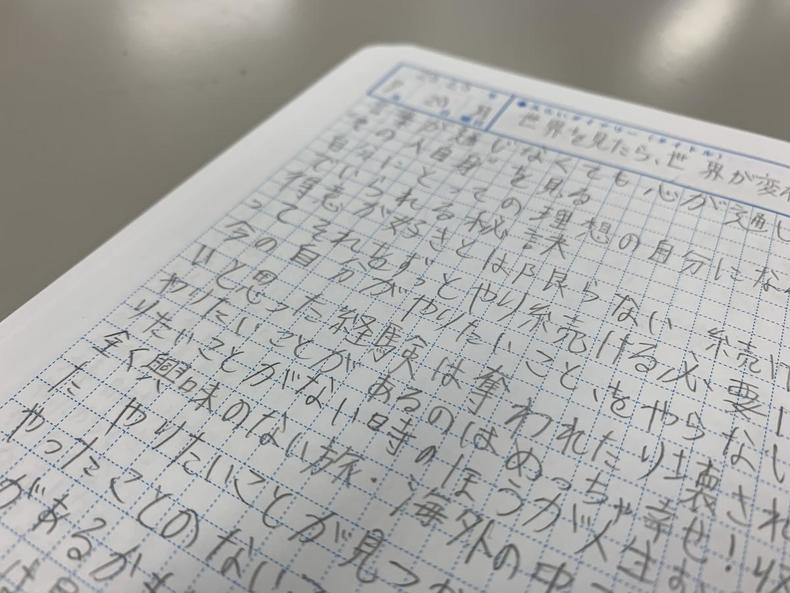 世界を見たら、世界が変わ
言葉が通じなくても心が通じ
その人自身を見る
自分にとっての理想の自分にな
でいられる秘訣
得意が好きとは限らない 続け
ってそれをずっとやり続ける必要
今の自分がやりたいこと、をやらない
いと思った経験は奪われたり壊され
やりたいことがあるのはめっちゃ幸せ!
りたいことがない時のほうが人生
全く興味のない旅・海外の
た やりたいことが見つ
やったことのない
があるかも